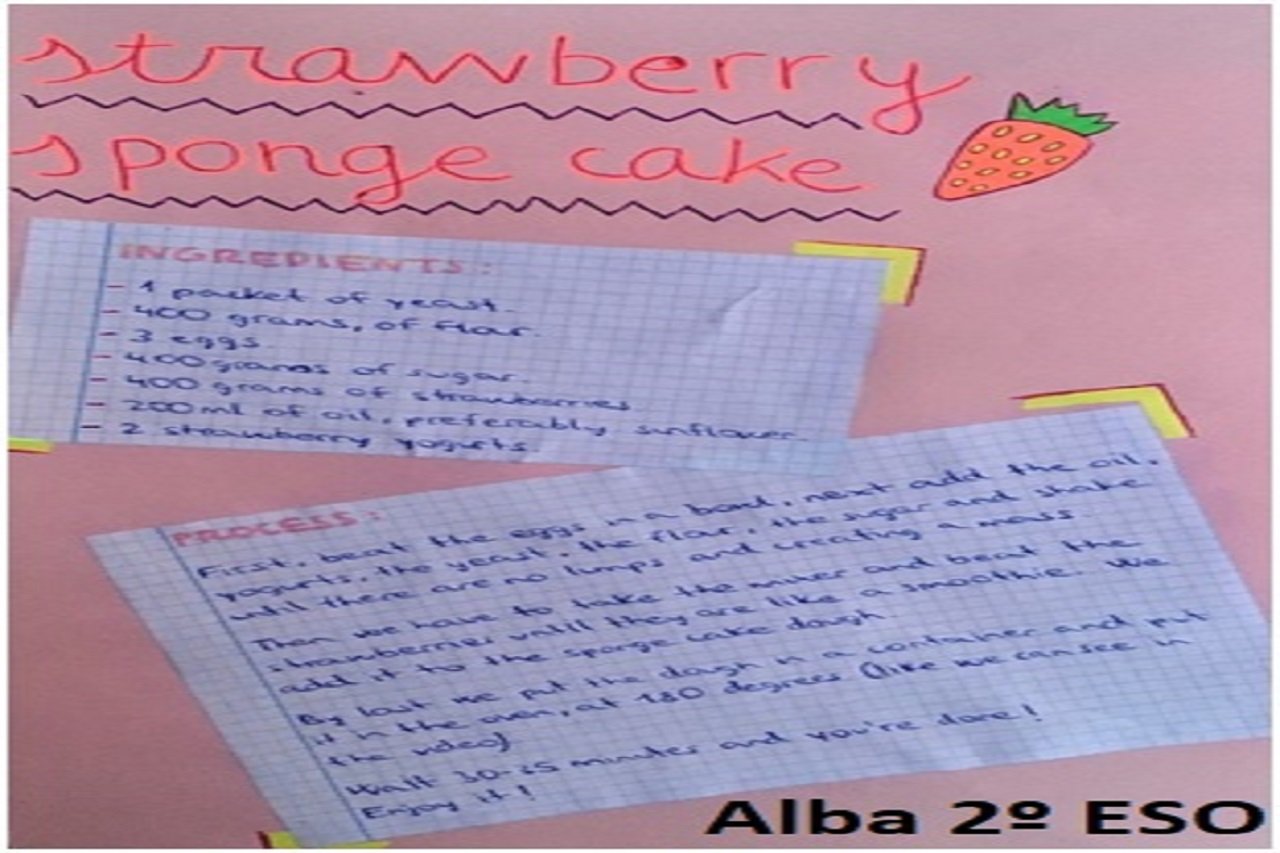 strawberry
sponge cake
INGREDIENTS:
- 1 packet of yeast.
- 400 grams, of flour.
- 3 eggs.
- 400 grams of sugar.
- 400 grams of strawberries.
- 200 ml of oil, preferably sunflower.
- 2 strawberry yogurts.
PROCESS:
First, beat the eggs in a bowl, next add the oil,
yogurts, the yeast, the flour, the sugar and shake
until there are no lumps and creating a mass.
Then we have to take the mixer and beat the
strawberries until they are like a smoothie. We
add it to the sponge cake dough.
By last we put the dough in a container and put
it in the oven, at 180 degrees (like we can see in
the video)
Wait 30-35 minutes and you're done!
Enjoy it!
Alba 2º ESO